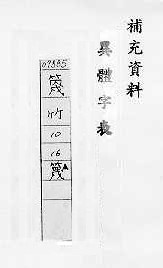 補充資料
異體字表
07885
篾
竹
10
16